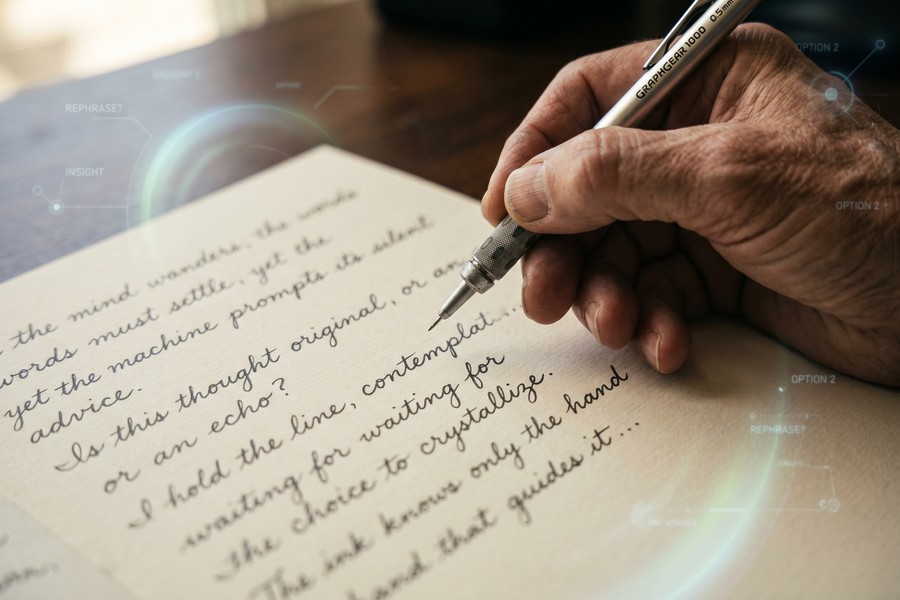 GRAPHGEAR 1000 0.5mm
OPTION 2
REPHRASE?
INSIGHT
OPTION 2
the mind wanders, the words
words must settle, yet the
yet the machine prompts its silent
advice.
Is this thought original, or an
or an echo?
I hold the line, contemplat...
waiting for waiting for
The choice to crystallize.
The ink knows only the hand
hand that guides it...
OPTION 2
REPHRASE?